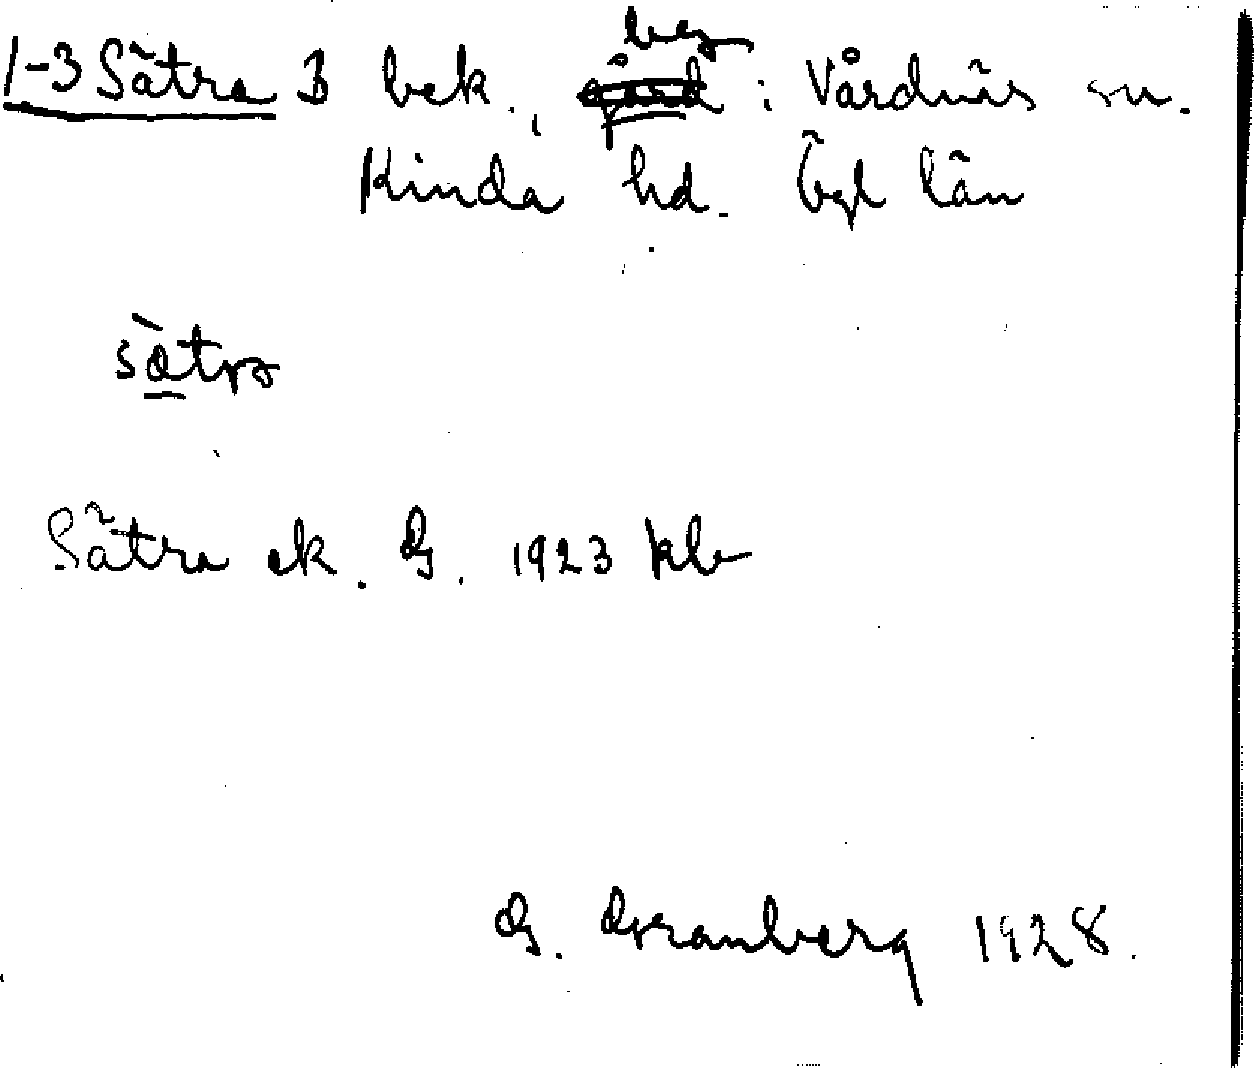 beg
1-3 Sätra 3 bek., gård : Vårdnäs sn.
Kinda hd. Ögl län
sàtra
Sätra ek. G. 1923 kb
G. Granberg 1928.